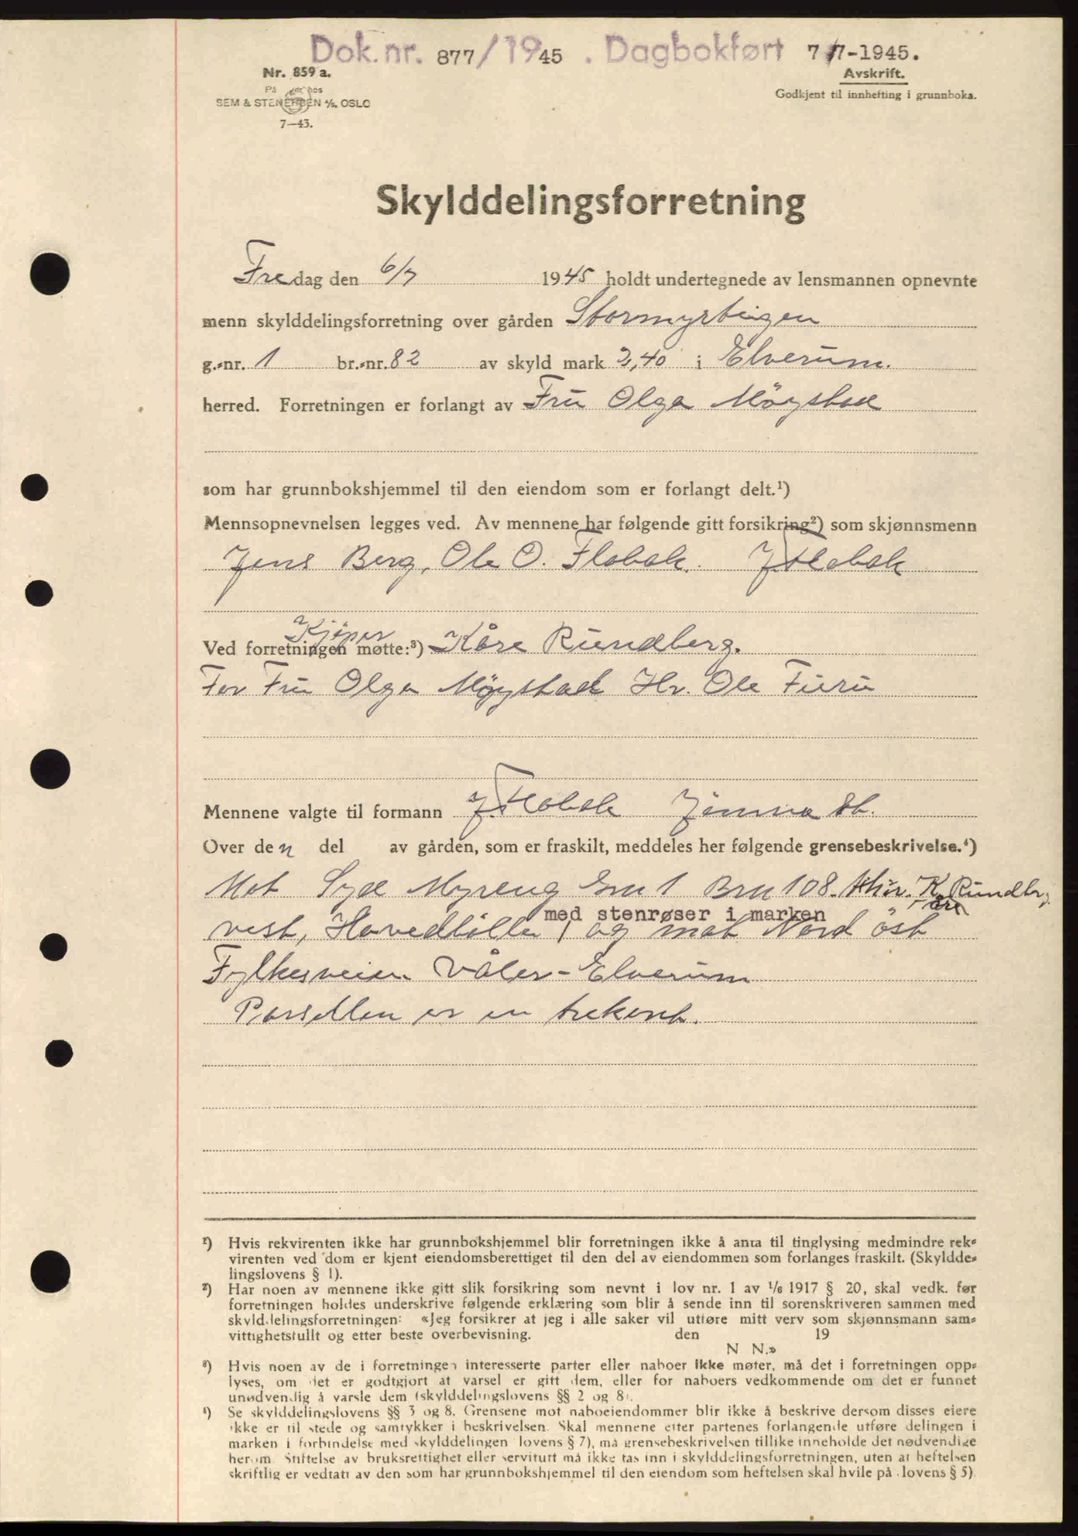 Dok. nr. 877/1945. Dagbokført 7/7-1945.
Nr. 859 a.
SEM & STENERSEN A/S, OSLO
7—43.
Avskrift.
Godkjent til innhefting i grunnboka.
Skylddelingsforretning
Fredag den 6/7 1945 holdt undertegnede av lensmannen opnevnte
menn skylddelingsforretning over gården Stormyrteigen
g.-nr. 1 br.-nr. 82 av skyld mark 2,40 i Elverum.
herred. Forretningen er forlangt av Fru Olga Møystad
som har grunnbokshjemmel til den eiendom som er forlangt delt.¹)
Mennsopnevnelsen legges ved. Av mennene har følgende gitt forsikring²) som skjønnsmenn
Jens Berg, Ole O. Flobak. J. Flobak
Kjøper
Ved forretningen møtte:³) Kåre Rundberg.
For Fru Olga Møystad Hr. Ole Furu
Mennene valgte til formann J. Flobak Jømna st.
Over den del av gården, som er fraskilt, meddeles her følgende grensebeskrivelse.⁴)
Mot Syd Myreng Gnr 1 Brn 108. K. Rundberg
med stenrøser i marken
vest, Hovedbølle, og mot Nord öst
Fylkesveien Våler-Elverum
Parsellen er en trekant.
¹) Hvis rekvirenten ikke har grunnbokshjemmel blir forretningen ikke å anta til tinglysing medmindre rek-
virenten ved dom er kjent eiendomsberettiget til den del av eiendommen som forlanges fraskilt. (Skyldde-
lingslovens § 1).
²) Har noen av mennene ikke gitt slik forsikring som nevnt i lov nr. 1 av 1/6 1917 § 20, skal vedk. før
forretningen holdes underskrive følgende erklæring som blir å sende inn til sorenskriveren sammen med
skylddelingsforretningen: «Jeg forsikrer at jeg i alle saker vil utføre mitt verv som skjønnsmann sam-
vittighetsfullt og etter beste overbevisning. den 19
N N.»
³) Hvis noen av de i forretningen interesserte parter eller naboer ikke møter, må det i forretningen opp-
lyses, om det er godtgjort at varsel er gitt dem, eller for naboers vedkommende om det er funnet
unødvendig å varsle dem (skylddelingslovens §§ 2 og 8).
⁴) Se skylddelingslovens §§ 3 og 8. Grensene mot naboeiendommer blir ikke å beskrive dersom disses eiere
ikke er til stede og samtykker i beskrivelsen. Skal mennene etter partenes forlangende utføre delingen i
marken i forbindelse med skylddelingen (lovens § 7), må grensebeskrivelsen tillike inneholde det nødvendige
herom. Stiftelse av bruksrettighet eller servitutt må ikke tas inn i skylddelingsforretningen, uten at heftelsen
skriftlig er vedtatt av den som har grunnbokshjemmel til den eiendom som heftelsen skal hvile på (lovens § 5)